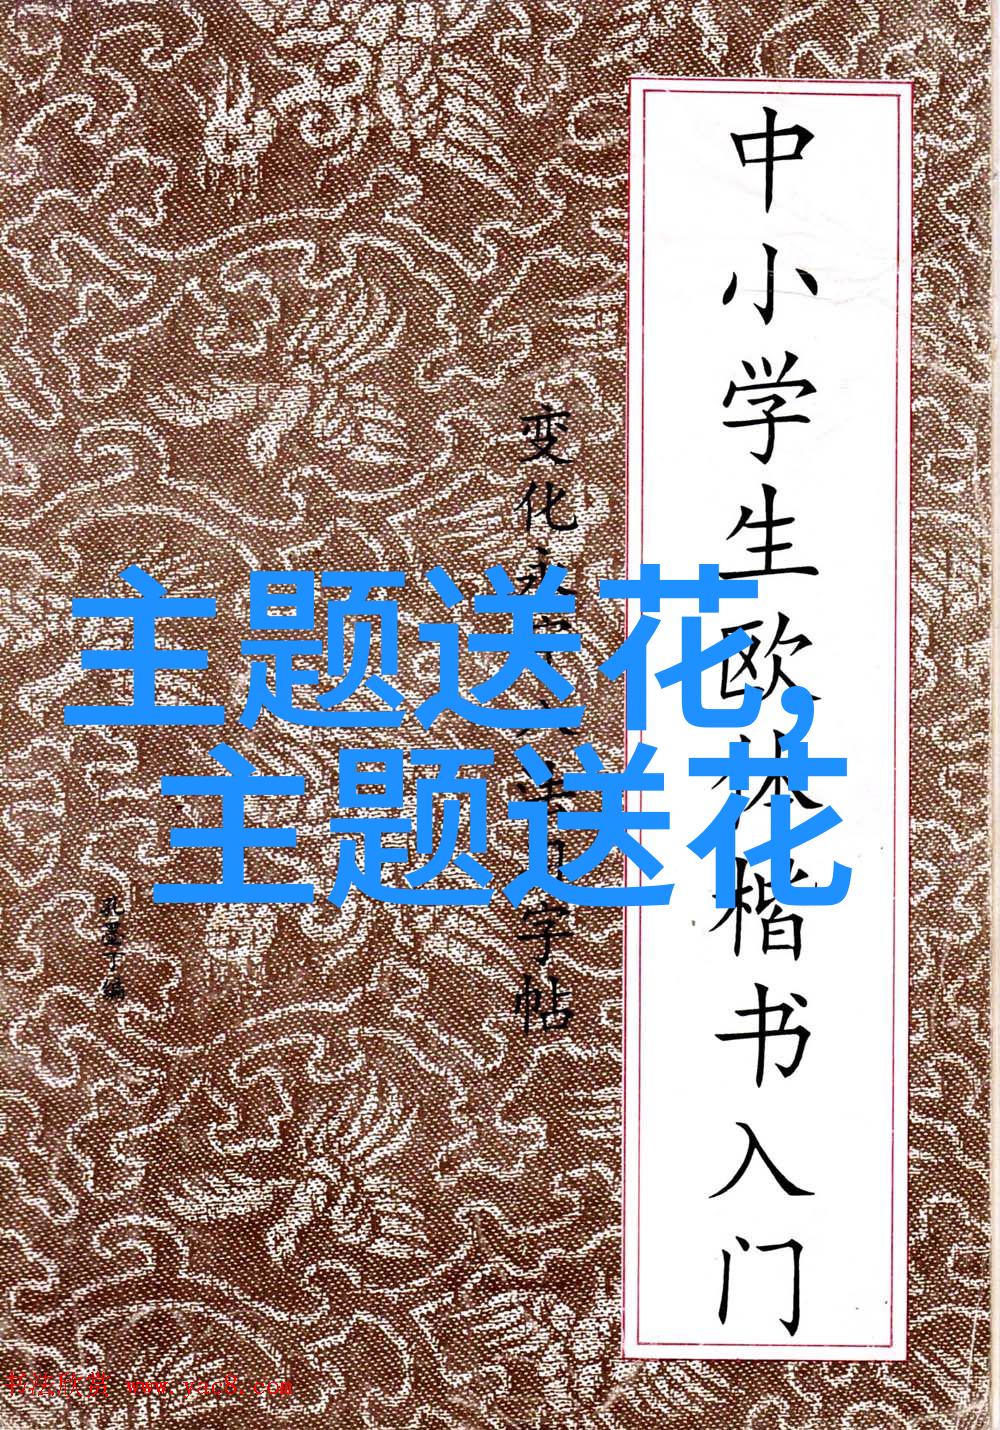 中小学生欧体楷书入门
变化
字帖
孔墨丁编
主题送花,
主题送花
书法欣赏 www.yac8.com